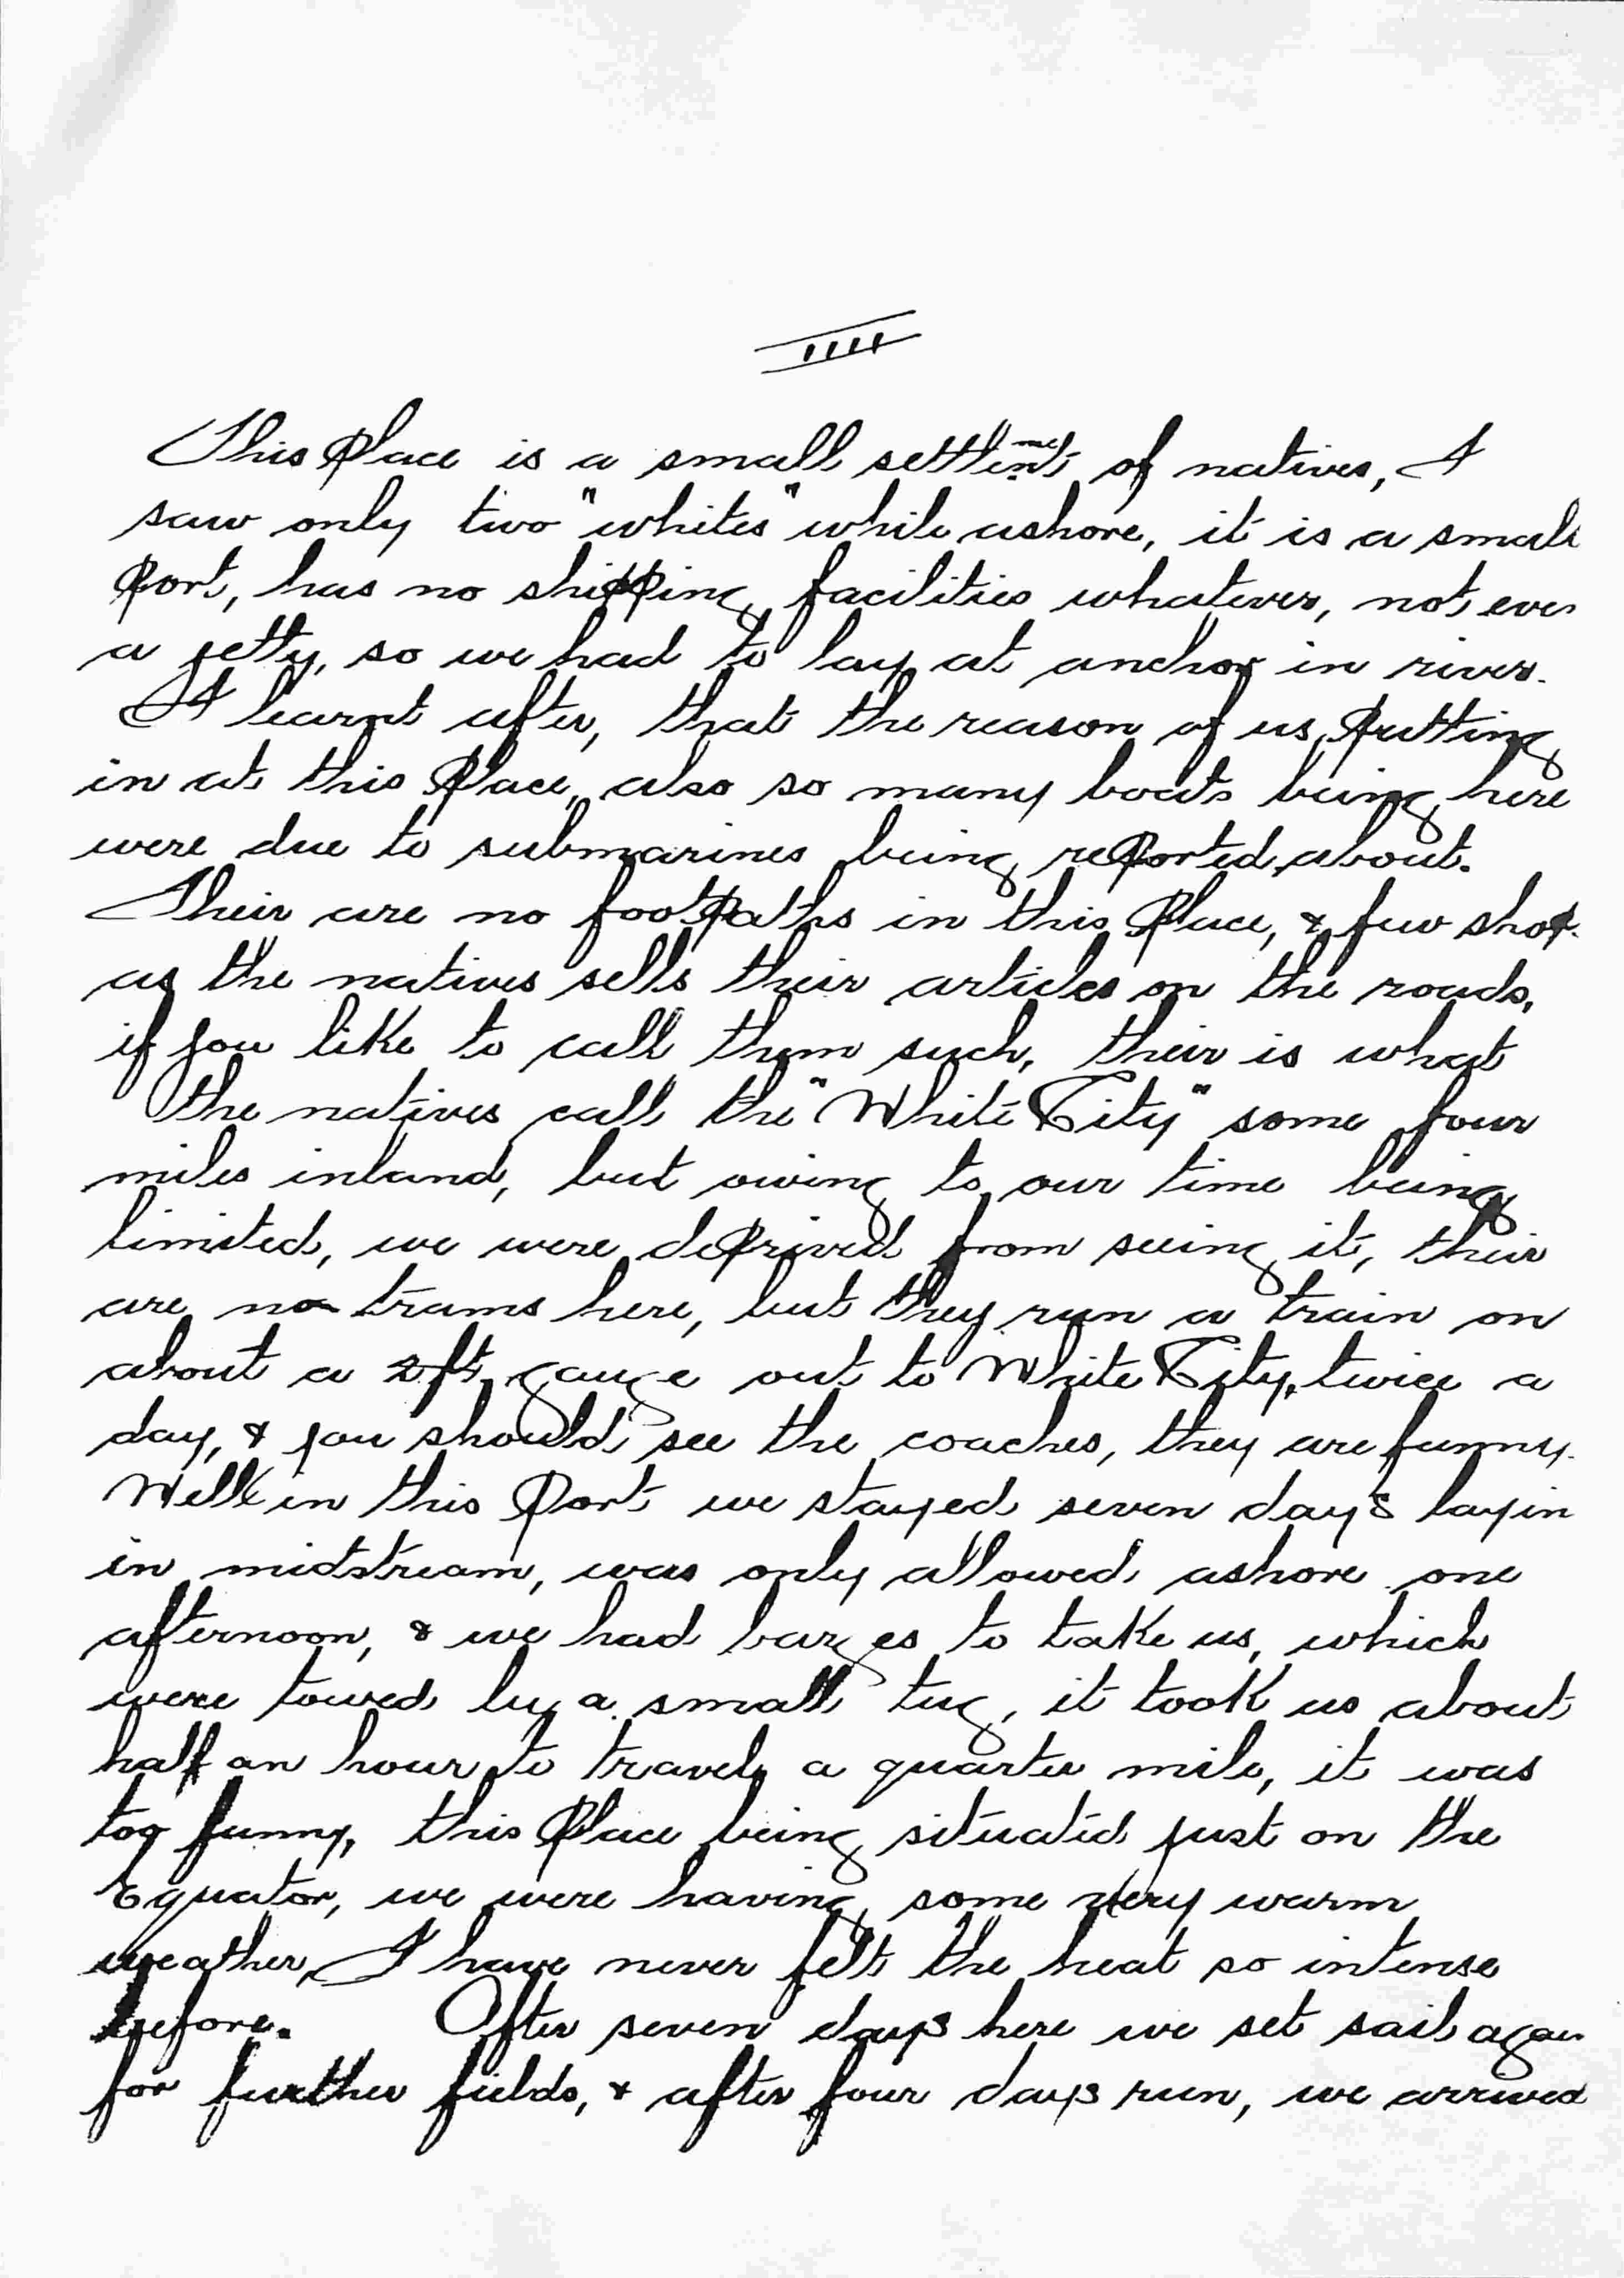 IIII
This Place is a small settlement of natives, I
saw only two "whites" while ashore, it is a small
Port, has no shipping facilities whatever, not even
a jetty, so we had to lay at anchor in river.
I learnt after, that the reason of us Putting
in at this Place, also so many boats being here
were due to submarines being rePorted about.
Their are no footPaths in this Place, & few shop
as the natives sells their articles on the roads,
if you like to call them such, their is what
the natives call the "White City" some four
miles inland, but owing to our time being
limited, we were dePrived from seeing it, their
are no trams here, but they run a train on
about a 2ft. gauge out to White City, twice a
day, & you should see the coaches, they are funny.
Well in this Port we stayed seven days layin
in midstream, was only allowed ashore one
afternoon, & we had barges to take us, which
were towed by a small tug, it took us about
half an hour to travel a quarter mile, it was
too funny, this Place being situated just on the
Equator, we were having some very warm
weather, I have never felt the heat so intense
before. After seven days here we set sail again
for further fields, & after four days run, we arrived